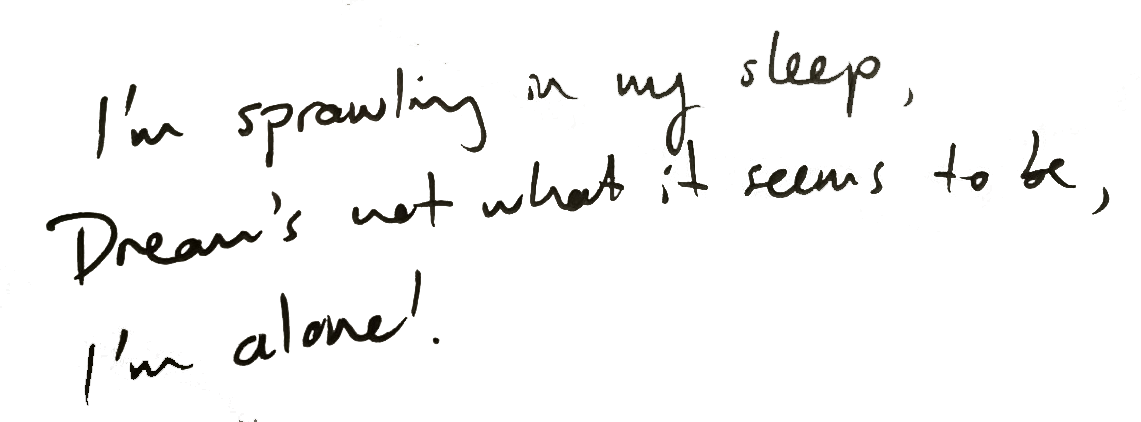 I'm sprawling in my sleep,
Dream's not what it seems to be,
I'm alone!